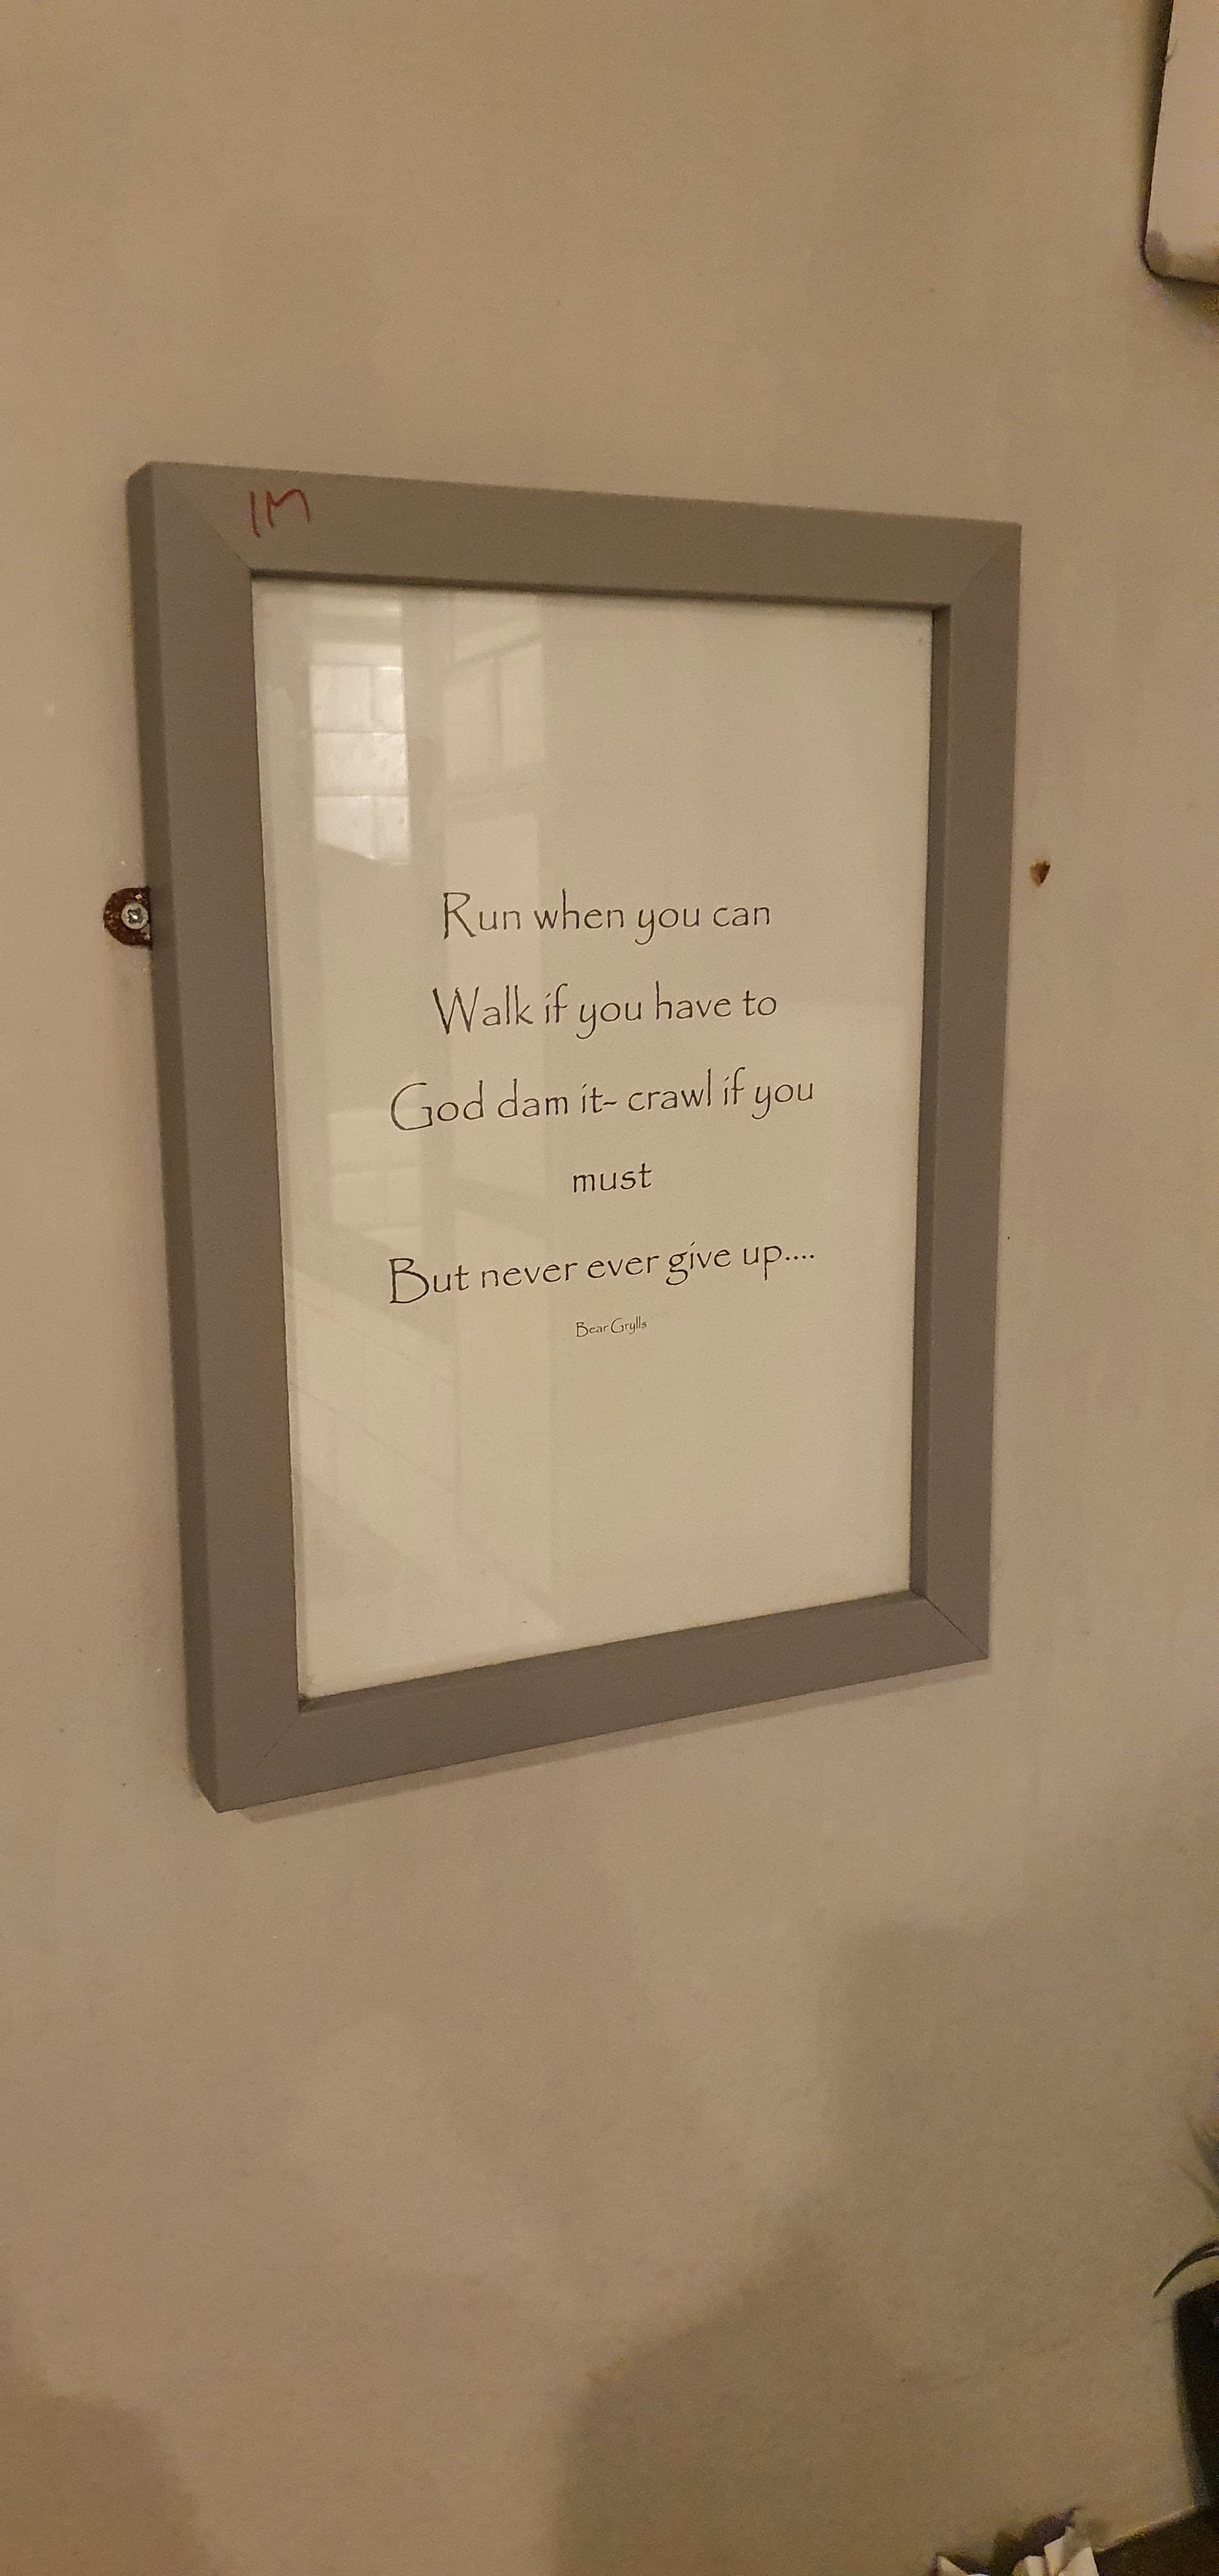 IM
Run when you can
Walk if you have to
God dam it- crawl if you
must
But never ever give up....
Bear Grylls